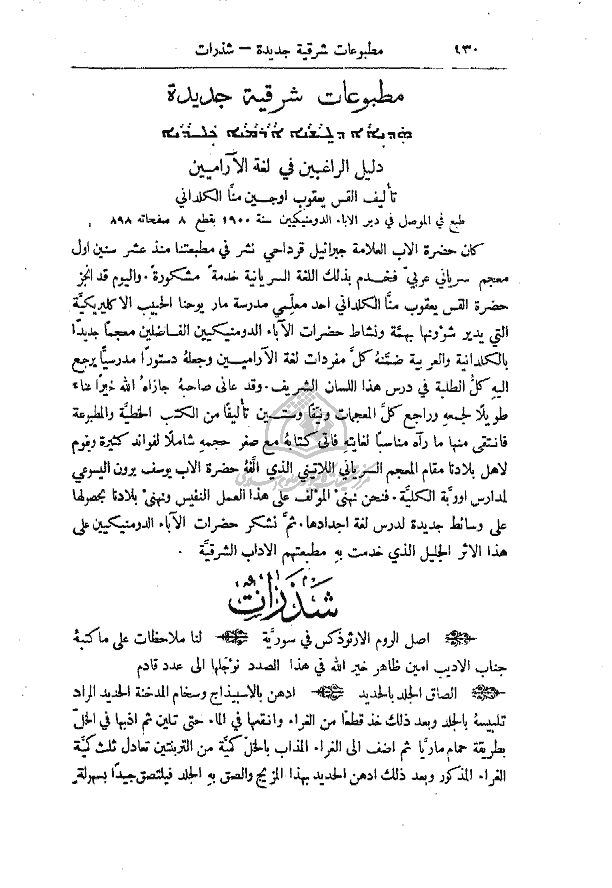 ٤٣٠ مطبوعات شرقية جديدة — شذرات
مطبوعات شرقية جديدة
دليل الراغبين في لغة الآراميين
تأليف القس يعقوب اوجين منَّا الكلداني
طبع في الموصل في دير الاباء الدومنيكيين سنة ١٩٠٠ بقطع ٨ صفحاته ٨٩٨
كان حضرة الاب العلامة جبرائيل قرداحي نشر في مطبعتنا منذ عشر سنين اول
معجم سرياني عربي فخدم بذلك اللغة السريانية خدمة مشكورة. واليوم قد انجز
حضرة القس يعقوب منَّا الكلداني احد معلِّمي مدرسة مار يوحنا الحبيب الاكليريكيَّة
التي يدير شؤونها بهمَّة ونشاط حضرات الآباء الدومنيكيين الفاضلين معجماً جديدًا
بالكلدانية والعربية ضمَّنهُ كلَّ مفردات لغة الآراميين وجعلهُ دستورًا مدرسياً يرجع
اليهِ كلُّ الطلبة في درس هذا اللسان الشريف. وقد عانى صاحبهُ جازاهُ الله خيرًا عناء
طويلًا لجمعهِ وراجع كلَّ المعجمات ونيّفًا وستين تأليفًا من الكتب الخطيَّة والمطبوعة
فانتقى منها ما رآه مناسبًا لغايتهِ فاتى كتابهُ مع صغر حجمهِ شاملًا لفوائد كثيرة ويقوم
لاهل بلادنا مقام المعجم السرياني اللاتيني الذي الَّفهُ حضرة الاب يوسف برون اليسوعي
لمدارس اوربة الكليَّة. فنحن نهنئ المؤلف على هذا العمل النفيس ونهنئ بلادنا بحصولها
على وسائط جديدة لدرس لغة اجدادها. ثمَّ نشكر حضرات الآباء الدومنيكيين على
هذا الاثر الجليل الذي خدمت بهِ مطبعتهم الاداب الشرقيَّة
شذرات
اصل الروم الارثوذكس في سوريَّة لنا ملاحظات على ما كتبهُ
جناب الاديب امين ظاهر خير الله في هذا الصدد نؤجلها الى عدد قادم
الصاق الجلد بالحديد ادهن بالاسبيذاج وسخام المدخنة الحديد المراد
تلبيسهُ بالجلد وبعد ذلك خذ قطعًا من الغراء وانقعها في الماء حتى تلين ثم اذبها في الخلّ
بطريقة حمام ماريَّا ثم اضف الى الغراء المذاب بالخلّ كميَّة من التربنتين تعادل ثلث كميَّة
الغراء المذكور وبعد ذلك ادهن الحديد بهذا المزيج والصق بهِ الجلد فيلتصق جيدًا بسهولة